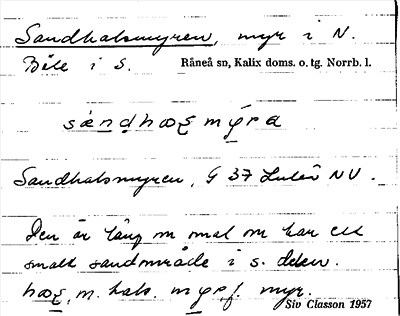 Sandhalsmyren, myr i N.
Böle i S. Råneå sn, Kalix doms. o. tg. Norrb. l.
Sandhalsmyren, G 37 Luleå NV.
Den är lång m smal m har ett
smalt sandområde i s. delen.
m. hals. f. myr.
Siv Classon 1957